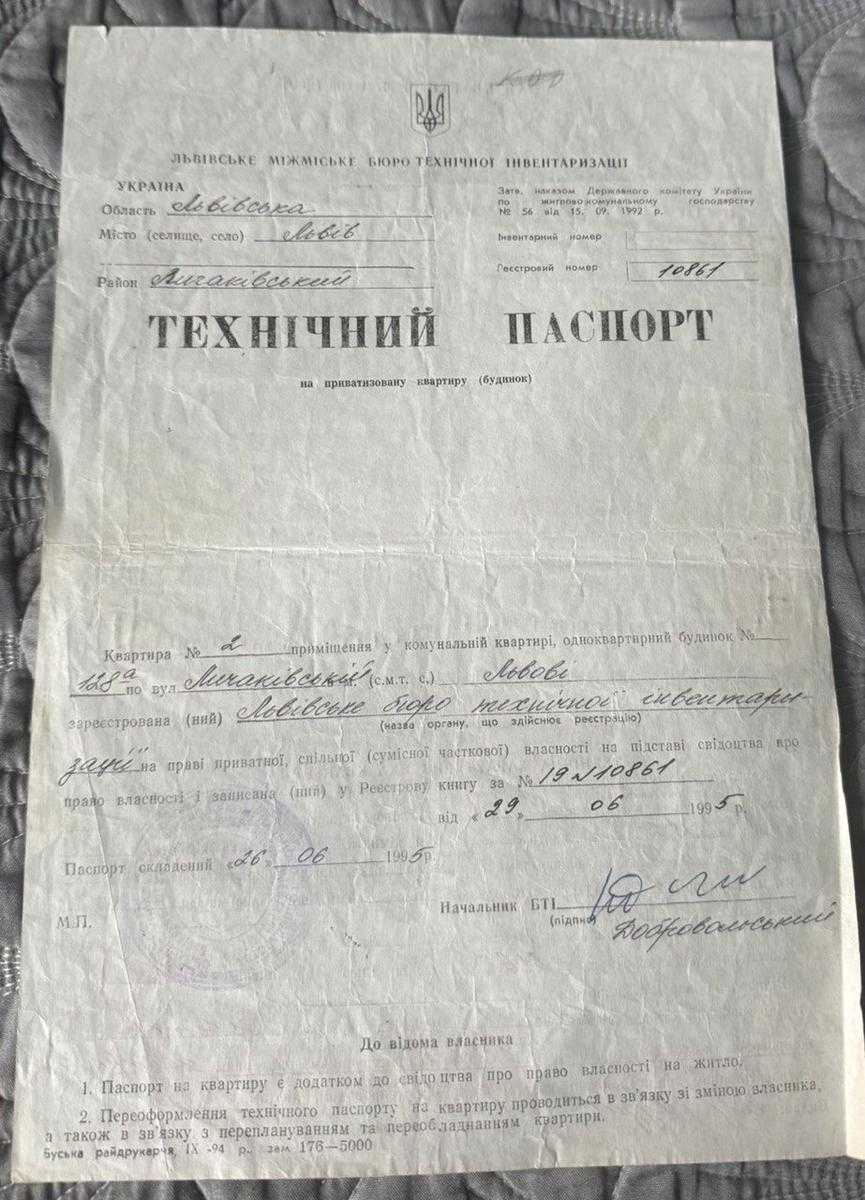 ЛЬВІВСЬКЕ МІЖМІСЬКЕ БЮРО ТЕХНІЧНОЇ ІНВЕНТАРИЗАЦІЇ
УКРАЇНА
Область Львівська
Місто (селище, село) Львів
Район Личаківський
Затв. наказом Державного комітету України
по житлово комунальному господарству
№ 56 від 15. 09. 1992 р.
Інвентарний номер
Реєстровий номер 10861
ТЕХНІЧНИЙ ПАСПОРТ
на приватизовану квартиру (будинок)
Квартира № 2 приміщення у комунальній квартирі, одноквартирний будинок №
128а по вул Личаківській (с.м.т. с.) Львові
зареєстрована (ний) Львівське бюро технічної інвентари-
(назва органу, що здійснює реєстрацію)
зації" на праві приватної, спільної (сумісної часткової) власності на підставі свідоцтва про
право власності і записана (ний) у Реєстрову книгу за № 19 10861
від «29» 06 1995р.
Паспорт складений «26» 06 1995р.
Начальник БТІ
(підпис)
Добровольський
М.П.
До відома власника
1. Паспорт на квартиру є додатком до свідоцтва про право власності на житло.
2. Переоформлення технічного паспорту на квартиру проводиться в зв'язку зі зміною власника,
а також в зв'язку з переплануванням та переобладнанням квартири.
Буська райдрукарня, ІХ -94 р., зам 176—5000